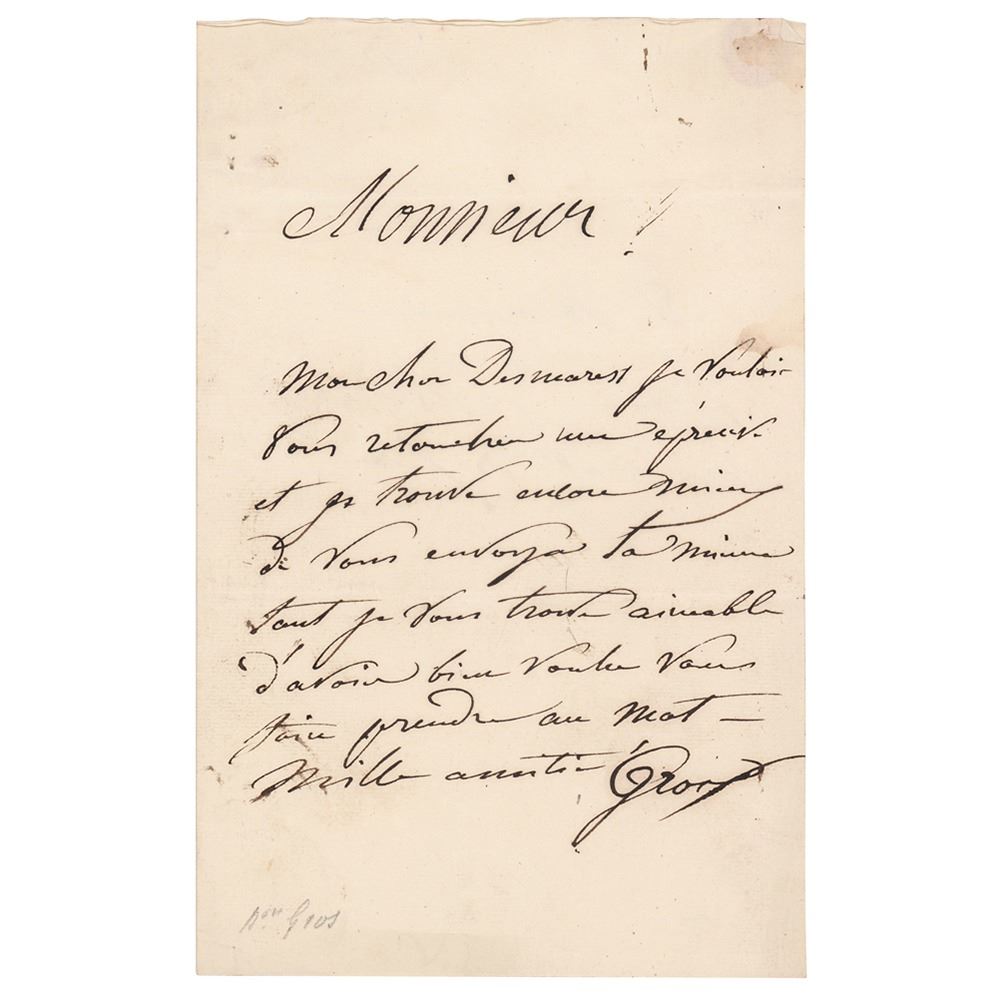 Monsieur
Mon cher Desmarest je voulois
vous retoucher une épreuve
et je trouve encore mieux
de vous envoyer la mienne
tant je vous trouve aimable
d'avoir bien voulu vous
faire prendre au mot —
Mille amitié Gros
Bon Gros